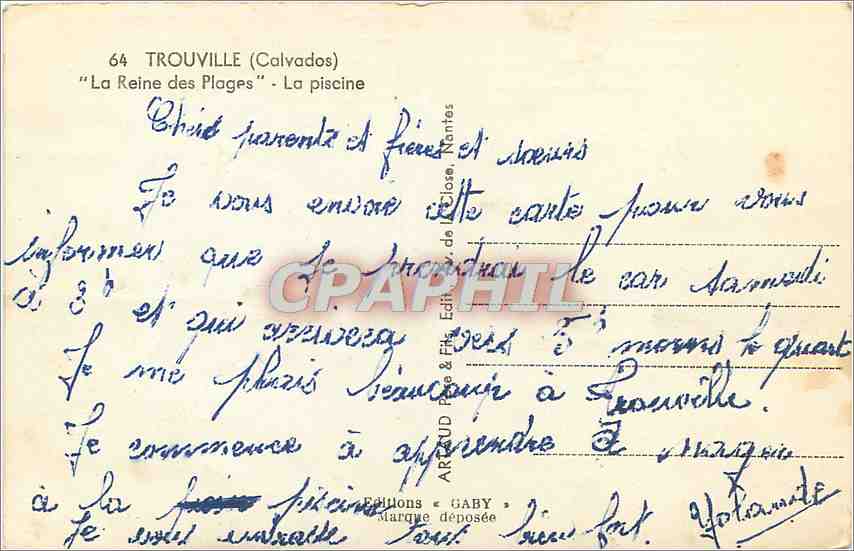 64 TROUVILLE (Calvados)
"La Reine des Plages" - La piscine
Chers parents et frères et soeurs
Je vous envoie cette carte pour vous
informer que je prendrai le car samedi
à 3h et qui arrivera vers 5h moins le quart
Je me plais beaucoup à Trouville.
Je commence à apprendre à nager
à la piscine
Je vous embrasse tout bien fort. Yolande
ARTAUD Père & Fils, Edit., Av. de la Close, Nantes
Editions « GABY »
Marque déposée
CPARPHIL